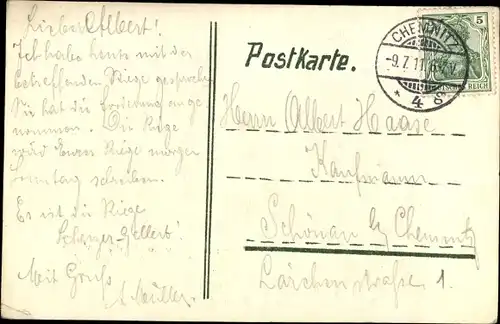 Lieber Albert!
Ich habe heute mit der
betreffenden Riege gesprochen
Sie hat die Forderung ange
nommen. Die Riege
wird Eurer Riege morgen
Sonntag schreiben.
Es ist die Riege
Scherzer-Gellert!
Mit Gruß
A. Müller.
Postkarte.
CHEMNITZ
-9.7.11.
* 4 g
5
DEUTSCHES REICH
Herrn Albert Haase
Kaufmann
Schönau b/ Chemnitz
Lärchenstraße 1.